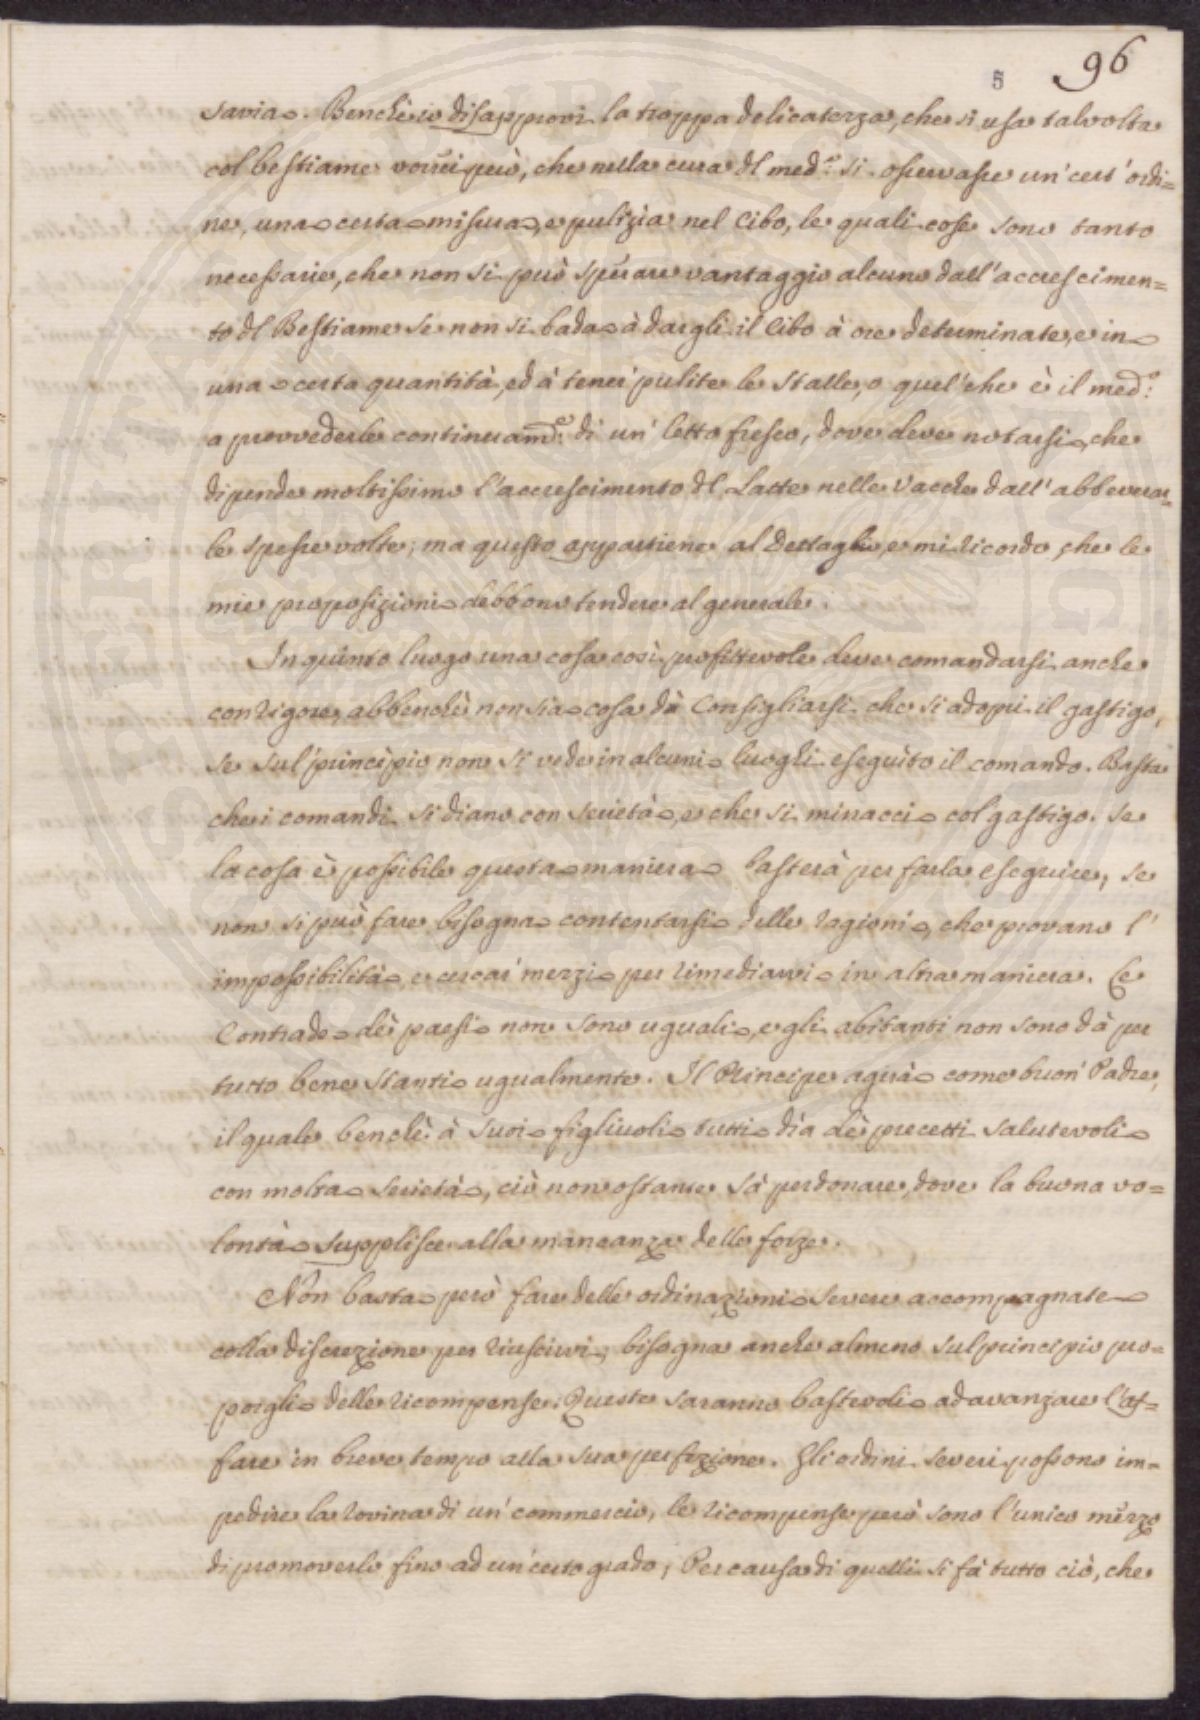 5 96
savia. Benchè io disapprovi la troppa delicatezza, che si usa talvolta
col bestiame vorrei però, che nella cura dl med.º si osservasse un' cert' ordi=
ne, una certa misura, e pulizia nel Cibo, le quali cose sono tanto
necessarie, che non si può sperare vantaggio alcuno dall' accrescimen=
to dl Bestiame se non si bada à dargli il Cibo à ore determinate, e in
una certa quantità, ed à tener' pulite le Stalle, o quel' che è il med.º
a provvederle continuam.e di un' letto fresco, dove deve notarsi, che
dipende moltissimo l'accrescimento dl Latte nelle Vacche dall' abbeverar=
le spesse volte; ma questo appartiene al Dettaglio, e mi ricordo, che le
mie proposizioni debbono tendere al generale.
In quinto luogo una cosa così profittevole deve comandarsi anche
con rigore, abbenchè non sia cosa dà Consigliarsi che si adopri il gastigo,
se sul' principio non si vede in alcuni luoghi eseguito il comando. Basta
che i comandi si diano con serietà, e che si minacci col gastigo. Se
la cosa è possibile questa maniera basterà per farla eseguire, se
non si può fare bisogna contentarsi delle ragioni, che provano l'
impossibilità, e cercar' mezzi per rimediarvi in altra maniera. Le
Contrade dè paesi non sono uguali, e gli abitanti non sono dà per
tutto bene stanti ugualmente. Il Principe agirà come buon' Padre,
il quale benchè à suoi figliuoli tutti dia dè precetti salutevoli
con molta serietà, ciò non ostante sà perdonare, dove la buona vo=
lontà supplisce alla mancanza delle forze.
Non basta però fare delle ordinazioni severe accompagnate
colla discrezione per riuscirvi, bisogna anche almeno sul principio pro=
porgli delle ricompense. Queste saranno bastevoli ad avanzare l'af=
fare in breve tempo alla sua perfezione. Gli ordini severi possono im=
pedire la rovina di un' commercio, le ricompense però sono l'unico mezzo
di promoverlo fino ad un' certo grado; Per causa di quelli si fà tutto ciò, che